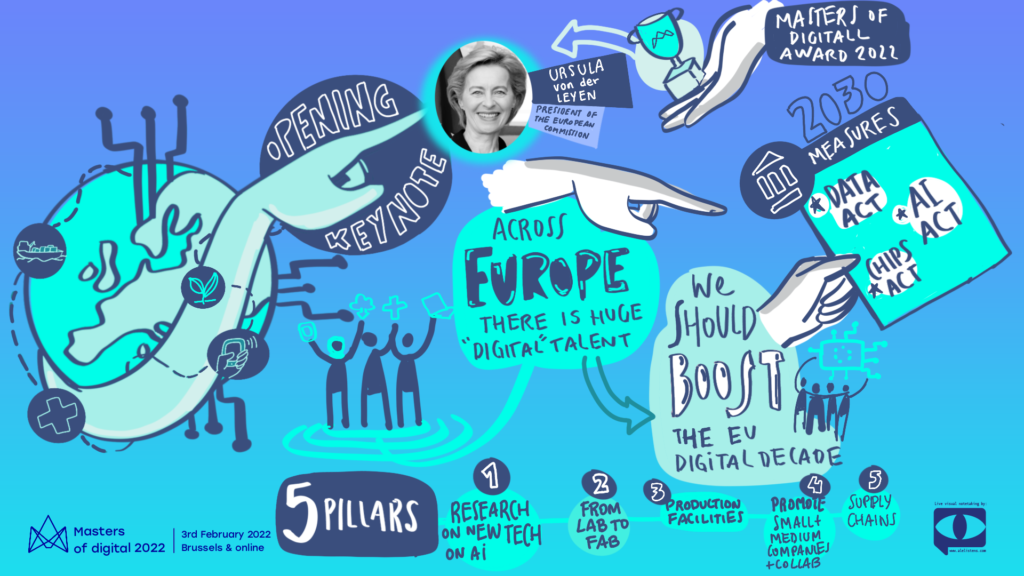 MASTERS OF
DIGITALL
AWARD 2022
URSULA
von der
LEYEN
PRESIDENT OF
THE EUROPEAN
COMMISSION
OPENING
KEYNOTE
2030
MEASURES
* DATA
ACT
* AI
ACT
CHIPS
* ACT
ACROSS
EUROPE
THERE IS HUGE
"DIGITAL" TALENT
We
SHOULD
BOOST
THE EU
DIGITAL DECADE
5 PILLARS
1
RESEARCH
ON NEW TECH
ON Ai
2
FROM
LAB TO
FAB
3
PRODUCTION
FACILITIES
4
PROMOTE
SMALL +
MEDIUM
COMPANIES
+ COLLAB
5
SUPPLY
CHAINS
Masters
of digital 2022
3rd February 2022
Brussels & online
Live visual notetaking by: